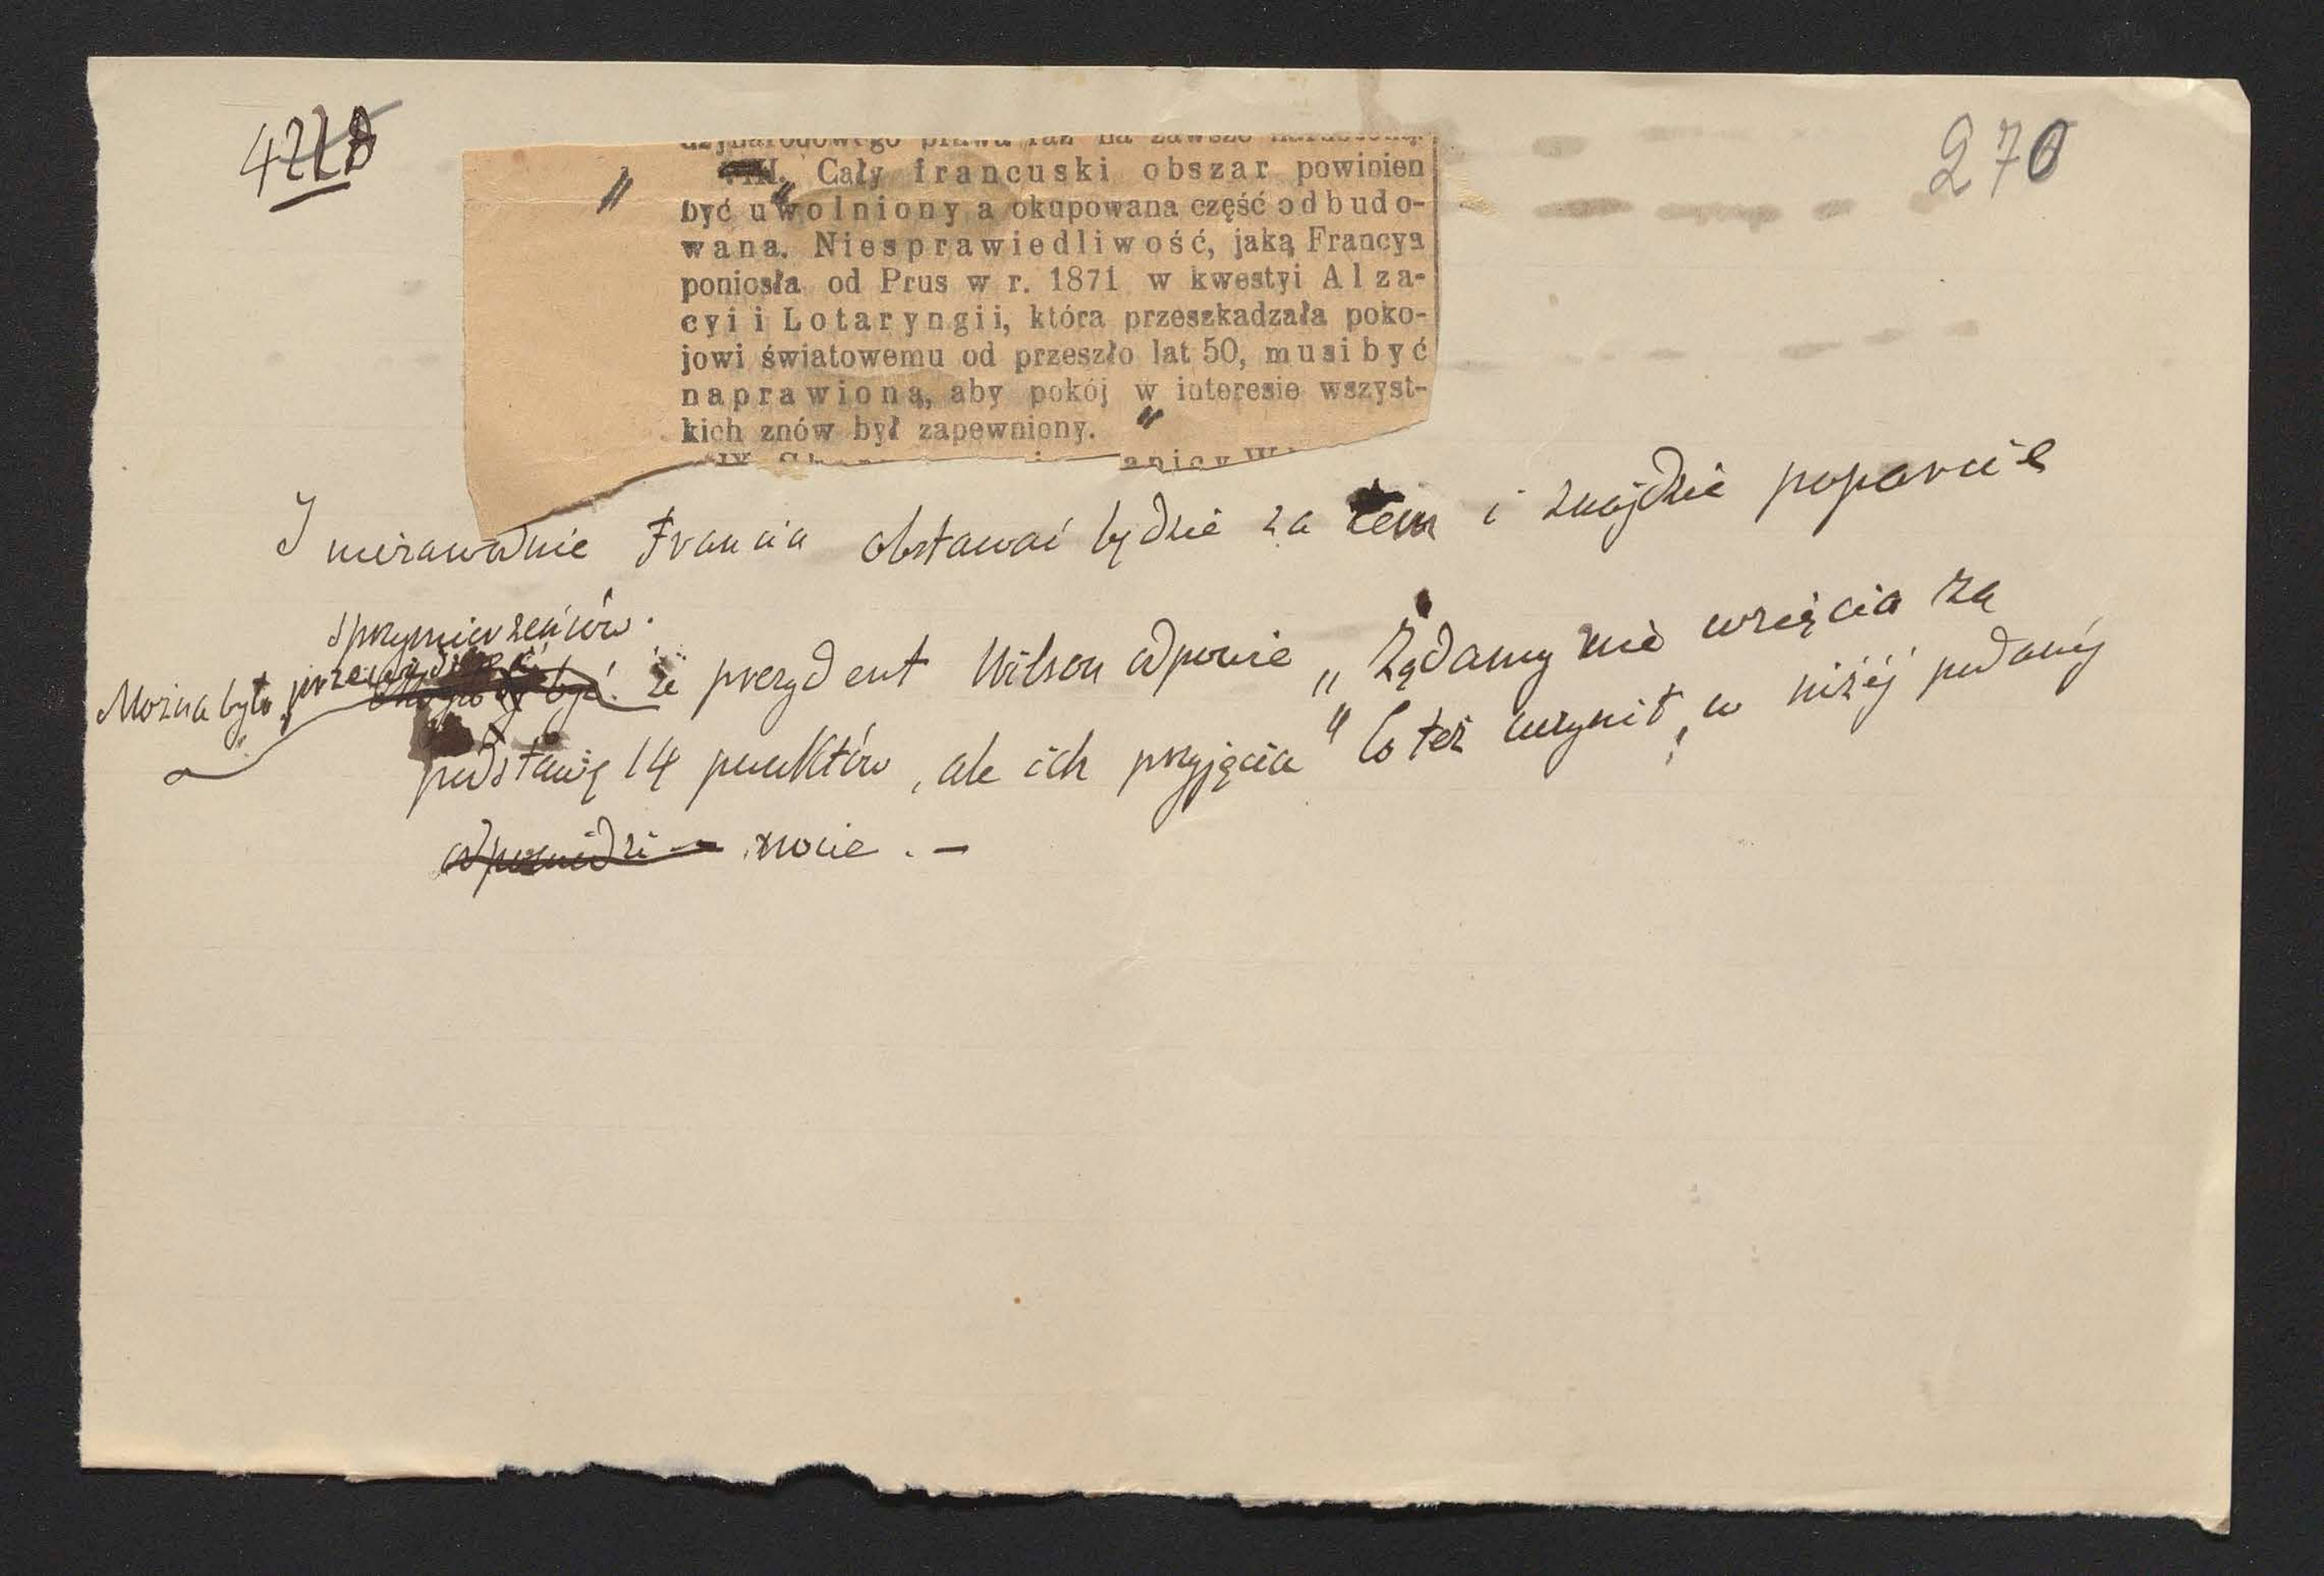 270
VIII. Cały francuski obszar powinien
być uwolniony a okupowana część odbudo-
wana. Niesprawiedliwość, jaką Francya
poniosła od Prus w r. 1871 w kwestyi Alza-
cyi i Lotaryngii, która przeszkadzała poko-
jowi światowemu od przeszło lat 50, musi być
naprawioną, aby pokój w interesie wszyst-
kich znów był zapewniony. "
I niezawodnie Francia obstawać będzie za tem i znajdzie poparcie
sprzymierzeńców.
Można było przewidzieć że prezydent Wilson odpowie „Żądamy nie wzięcia za
podstawę 14 punktów, ale ich przyjęcia" Co też uczynił, w niżéj podanéj
odpowiedzi nocie . —